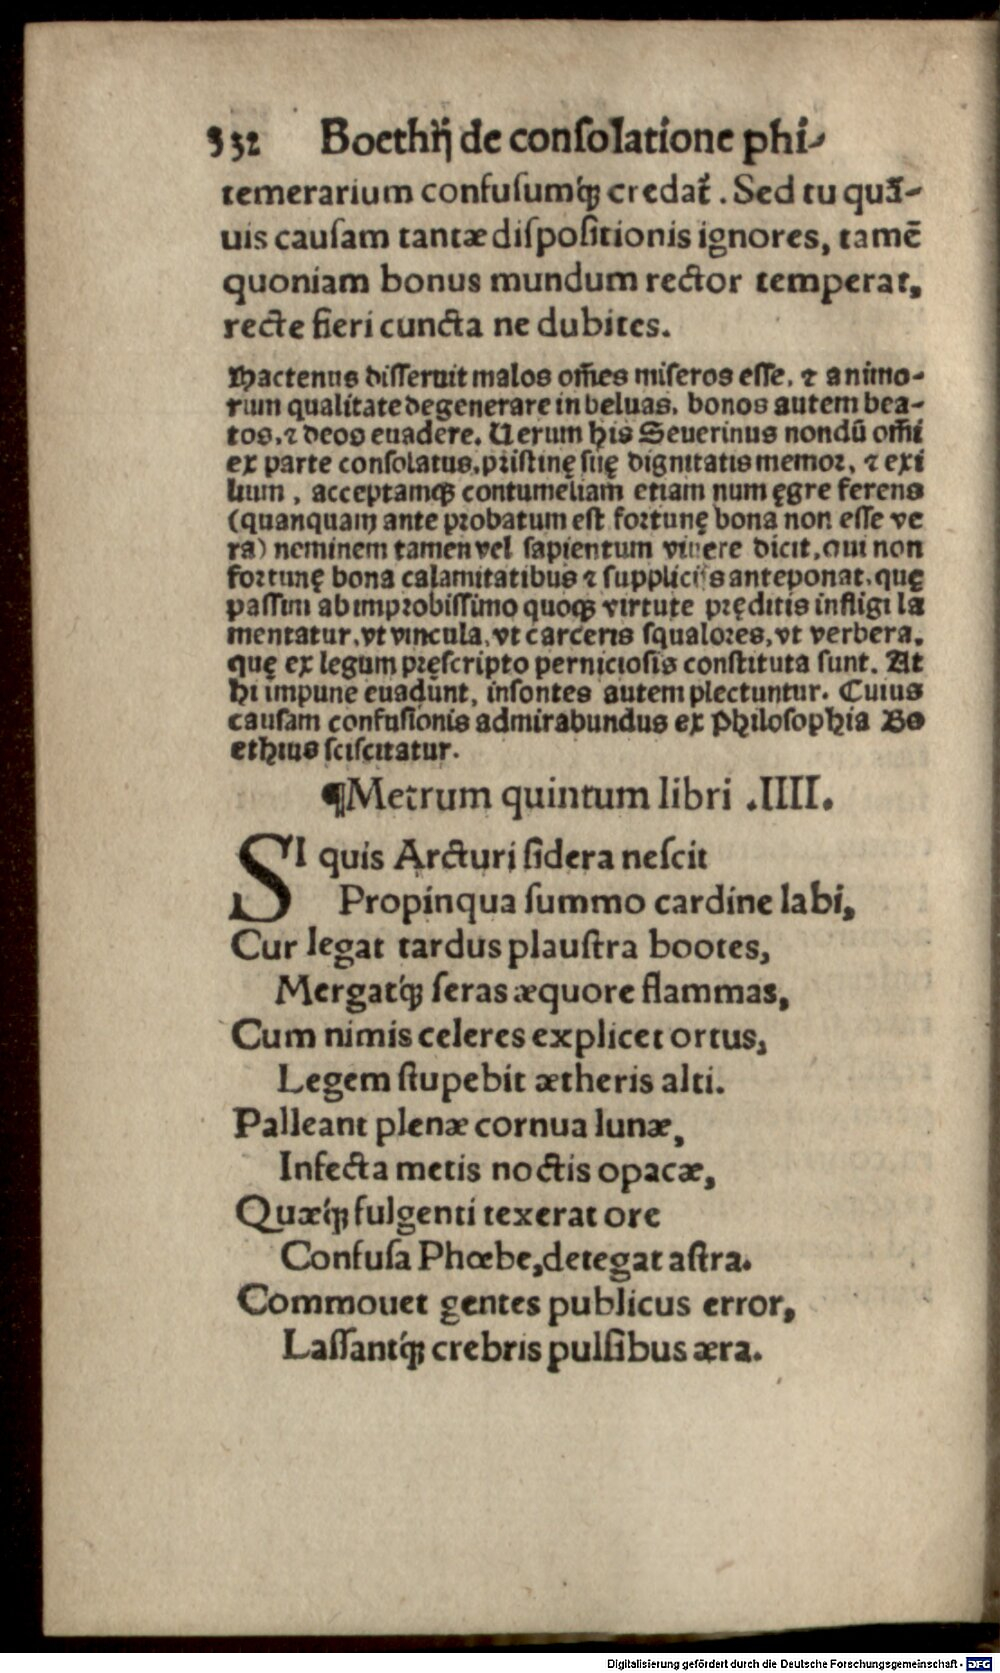 332 Boethij de conſolatione phi-
temerarium confuſumq́ꝫ credat᷑. Sed tu quã-
uis cauſam tantæ diſpoſitionis ignores, tamẽ
quoniam bonus mundum rector temperat,
recte fieri cuncta ne dubites.
Hactenus diſſeruit malos om̃es miſeros eſſe, ⁊ animo-
rum qualitate degenerare in beluas, bonos autem bea-
tos, ⁊ deos euadere. Uerum his Seuerinus nondũ om̃i
ex parte conſolatus, priſtinę ſuę dignitatis memor, ⁊ exi
lium, acceptamqꝫ contumeliam etiam num ęgre ferens
(quanquam ante probatum eſt fortunę bona non eſſe ve
ra) neminem tamen vel ſapientum viuere dicit, qui non
fortunę bona calamitatibus ⁊ ſupplicijs anteponat, quę
paſſim ab improbiſſimo quoqꝫ virtute pręditis infligi la
mentatur, vt vincula, vt carceris ſqualores, vt verbera,
quę ex legum pręſcripto pernicioſis conſtituta ſunt. At
hi impune euadũnt, inſontes autem plectuntur. Cuius
cauſam confuſionis admirabundus ex Philoſophia Bo
ethius ſciſcitatur.
¶Metrum quintum libri .IIII.
SI quis Arcturi ſidera neſcit
Propinqua ſummo cardine labi,
Cur legat tardus plauſtra bootes,
Mergatq́ꝫ ſeras æquore flammas,
Cum nimis celeres explicet ortus,
Legem ſtupebit ætheris alti.
Palleant plenæ cornua lunæ,
Infecta metis noctis opacæ,
Quæq́ꝫ fulgenti texerat ore
Confuſa Phœbe, detegat aſtra.
Commouet gentes publicus error,
Laſſantq́ꝫ crebris pulſibus æra.
Digitalisierung gefördert durch die Deutsche Forschungsgemeinschaft - DFG